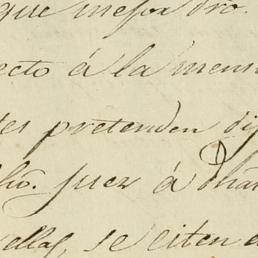 que mejor dro.
ecto á la mens
tes pretenden dif
ho. juez á dha
ellas, se citen á